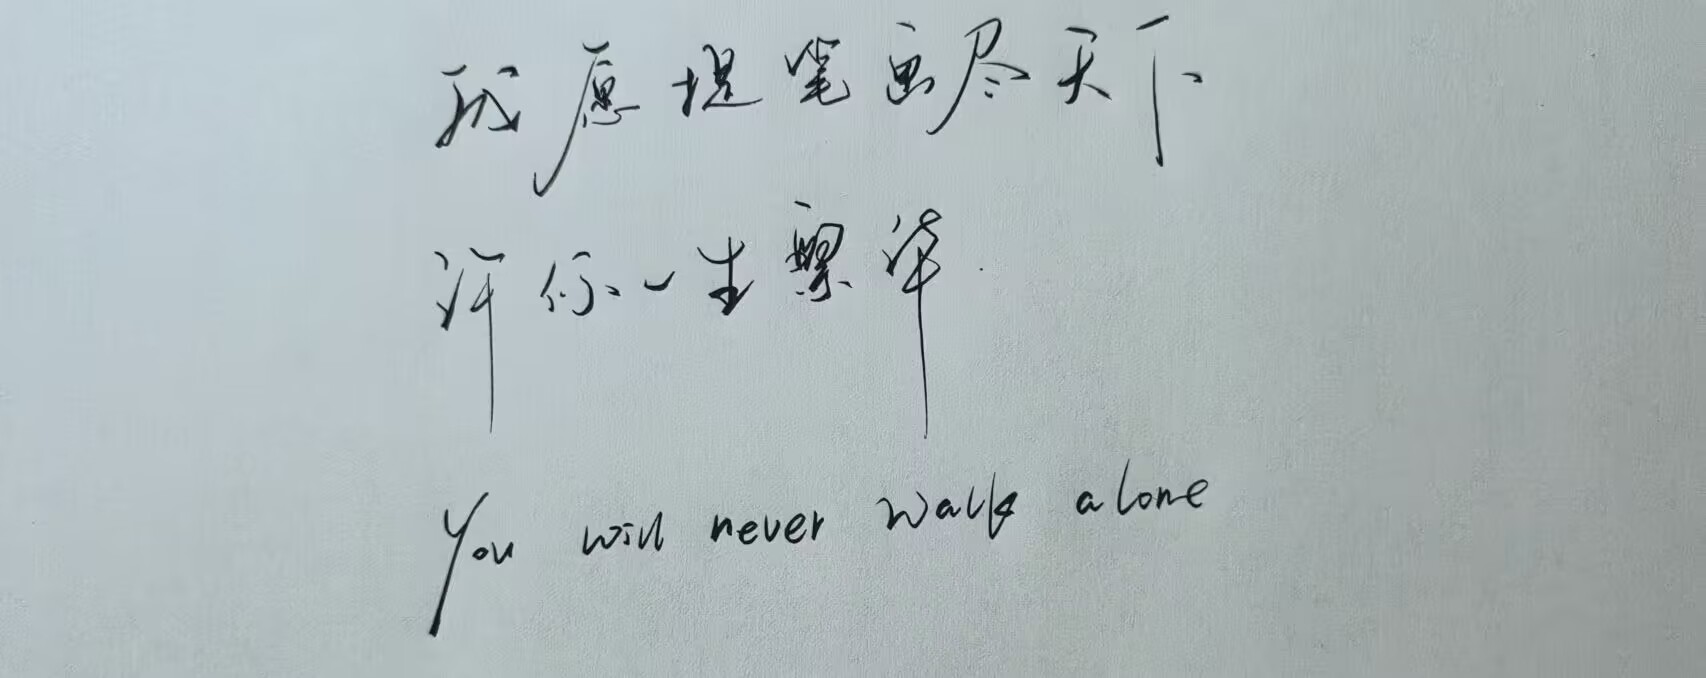 我愿提笔画尽天下
许你一生繁华
You will never walk alone